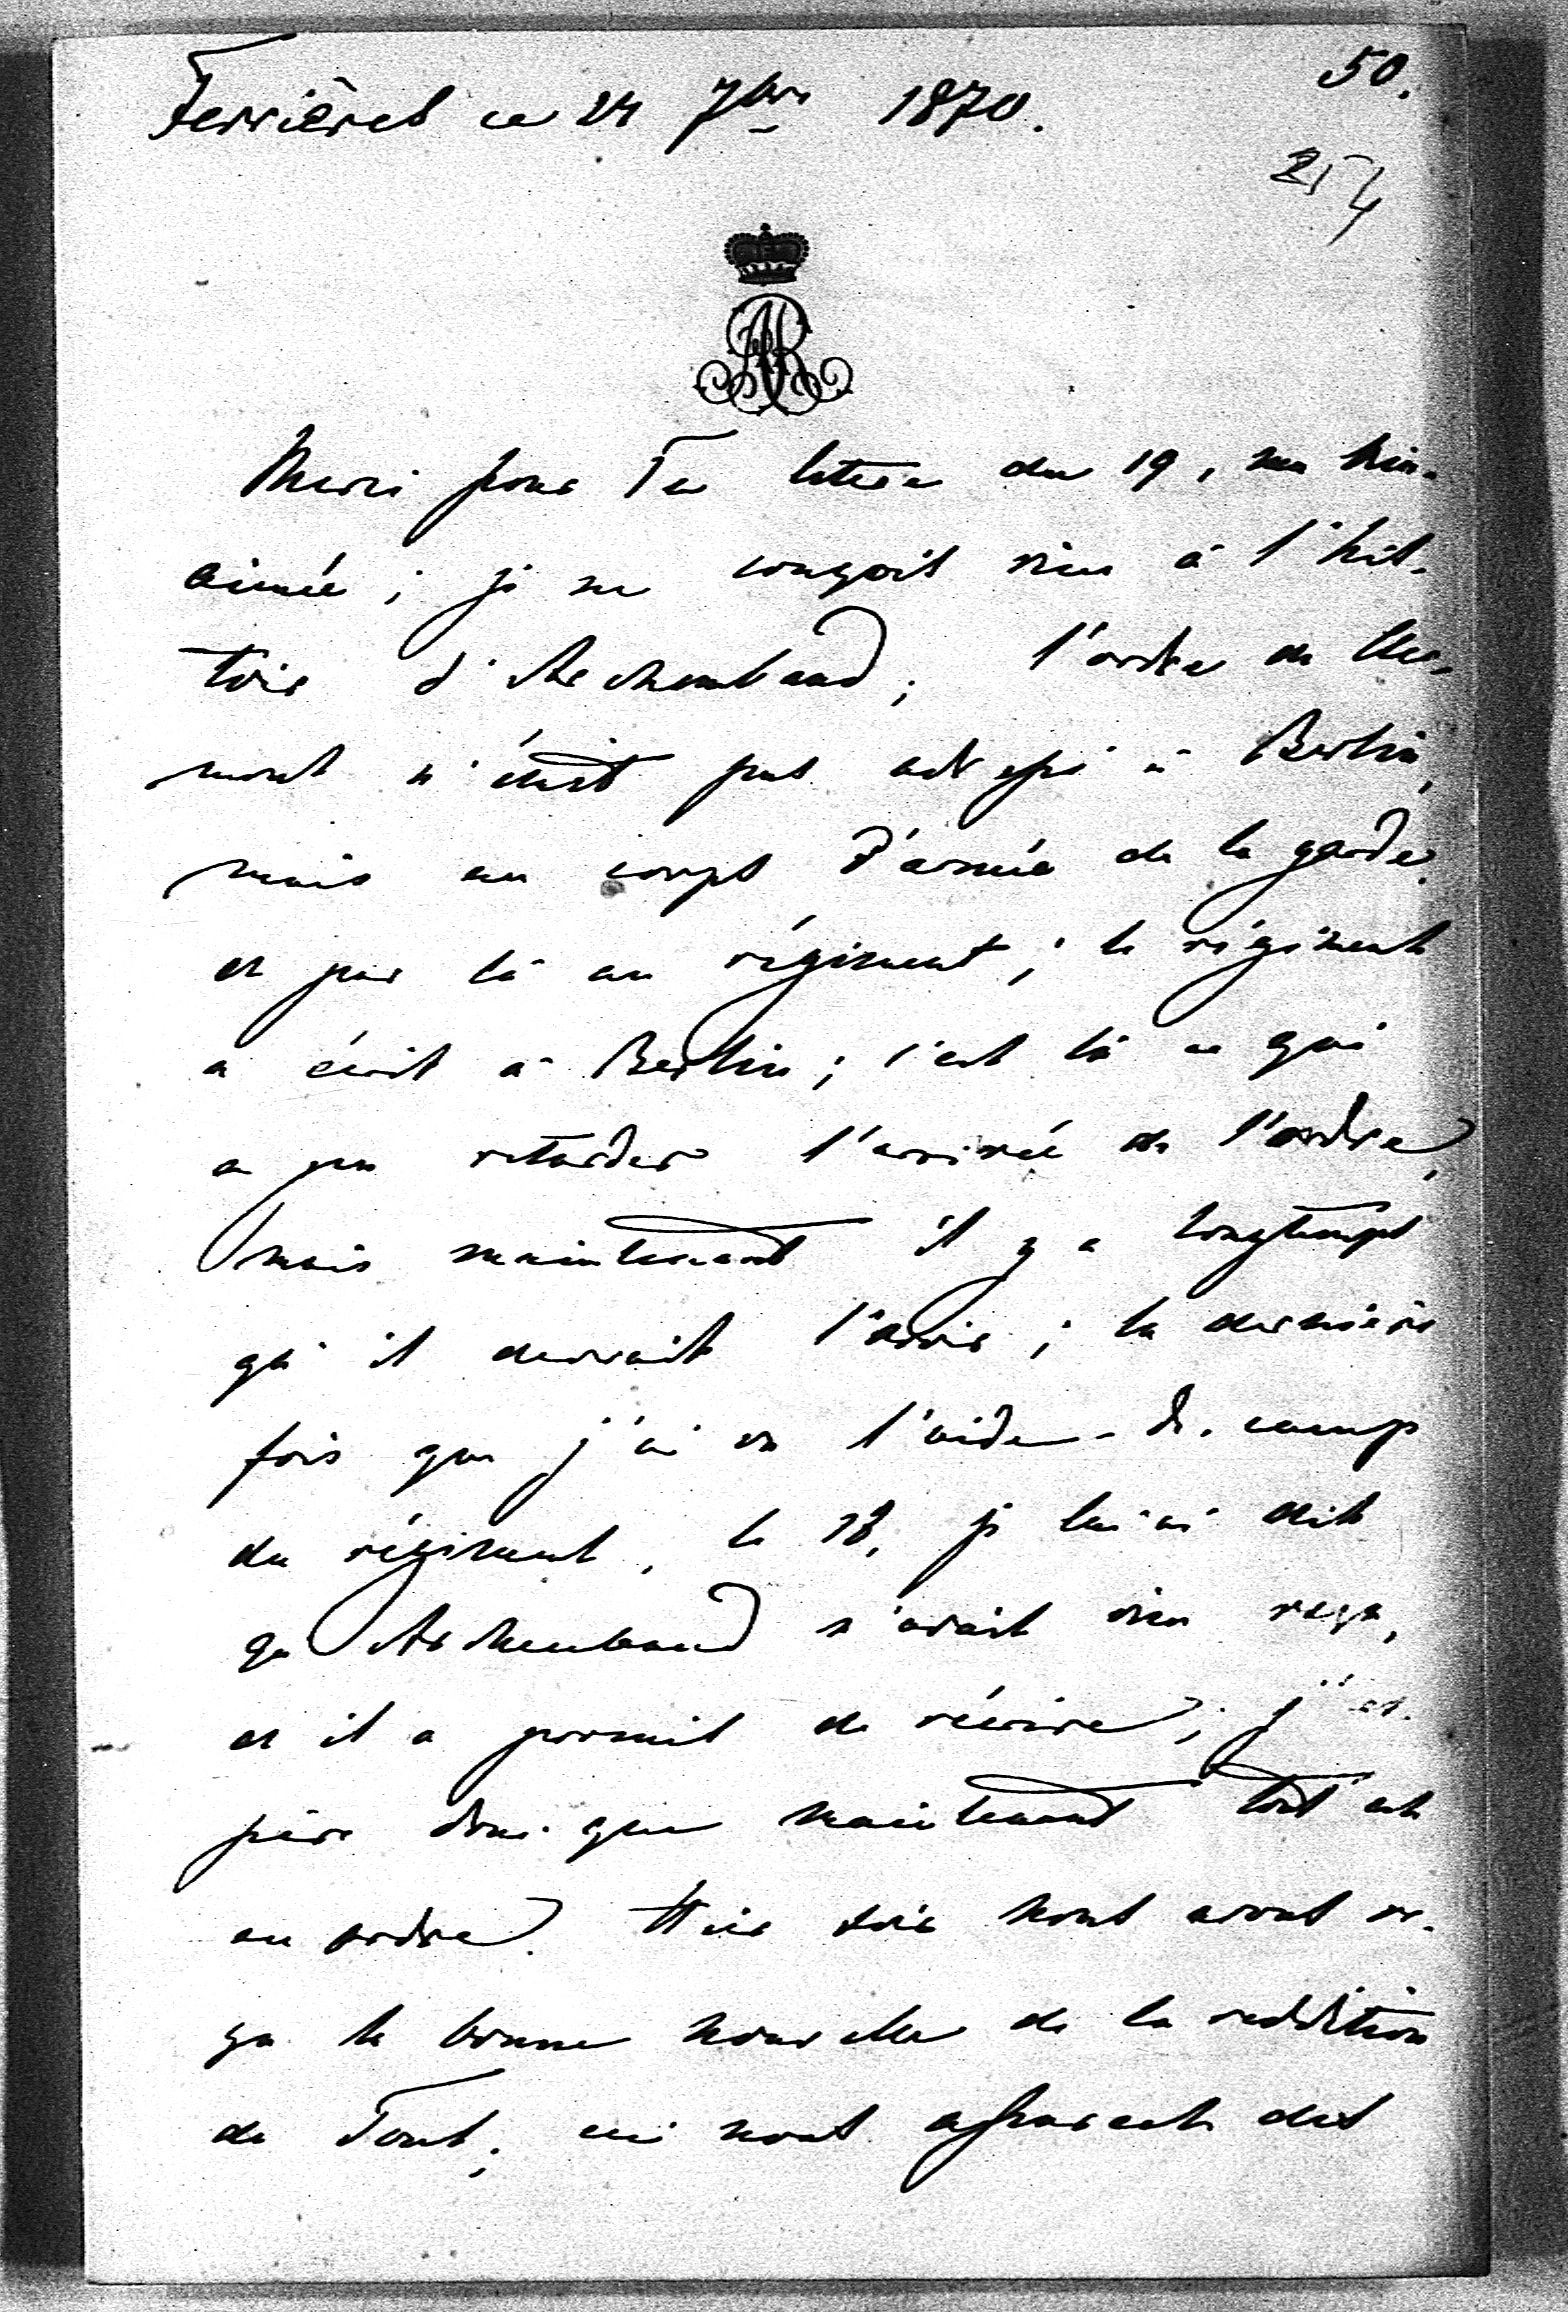 50.
Ferrières ce 24 7bre 1870.
254
Merci pour Ta lettre du 19, ma bien-
aimée ; je ne conçois rien à l'his-
toire d'Archambaud ; l'ordre de Cler-
mont n'était pas adressé à Berlin,
mais au corps d'armée de la garde
et par là au régiment ; le régiment
a écrit à Berlin ; c'est là ce qui
a pu retarder l'arrivée de l'ordre,
mais maintenant il y a longtemps
qu'il devrait l'avoir ; la dernière
fois que j'ai vu l'aide-de-camp
du régiment, le 18, je lui ai dit
qu'Archambaud n'avait rien reçu,
et il a promis de récrire ; j'es-
père donc que maintenant tout est
en ordre. Hier soir nous avons re-
çu la bonne nouvelle de la reddition
de Toul ; ceci nous assure des